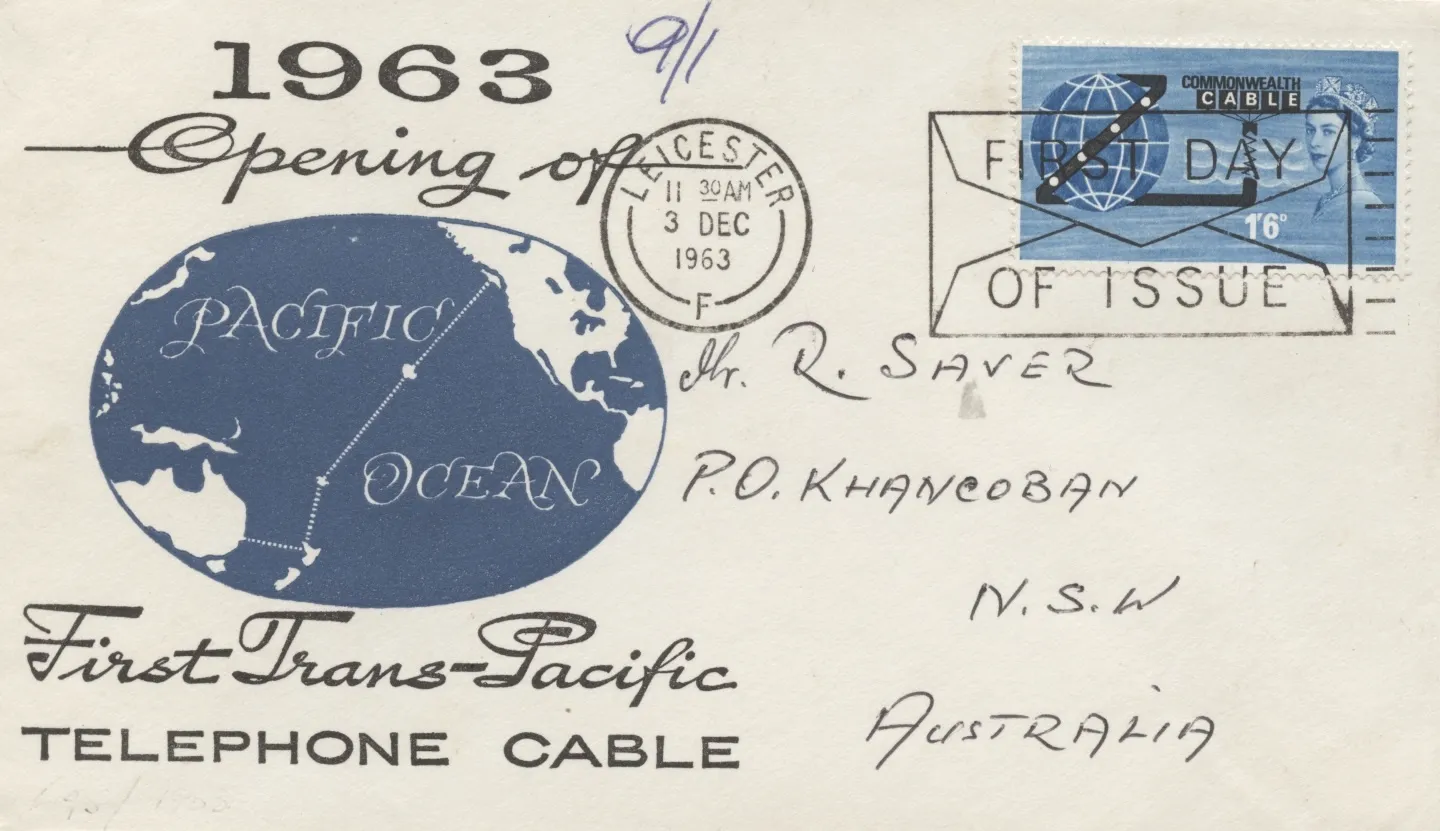 1963
9/1
Opening of
LEICESTER
11 30 AM
3 DEC
1963
F
COMMONWEALTH
CABLE
1'6D
FIRST DAY
OF ISSUE
PACIFIC
OCEAN
Mr. R. SAVER
P.O. KHANCOBAN
N.S.W
AUSTRALIA
First Trans-Pacific
TELEPHONE CABLE